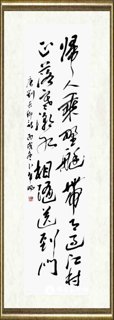 歸人乘野艇帶月過江村
正落寒潮水相隨夜到門
唐劉長卿詩